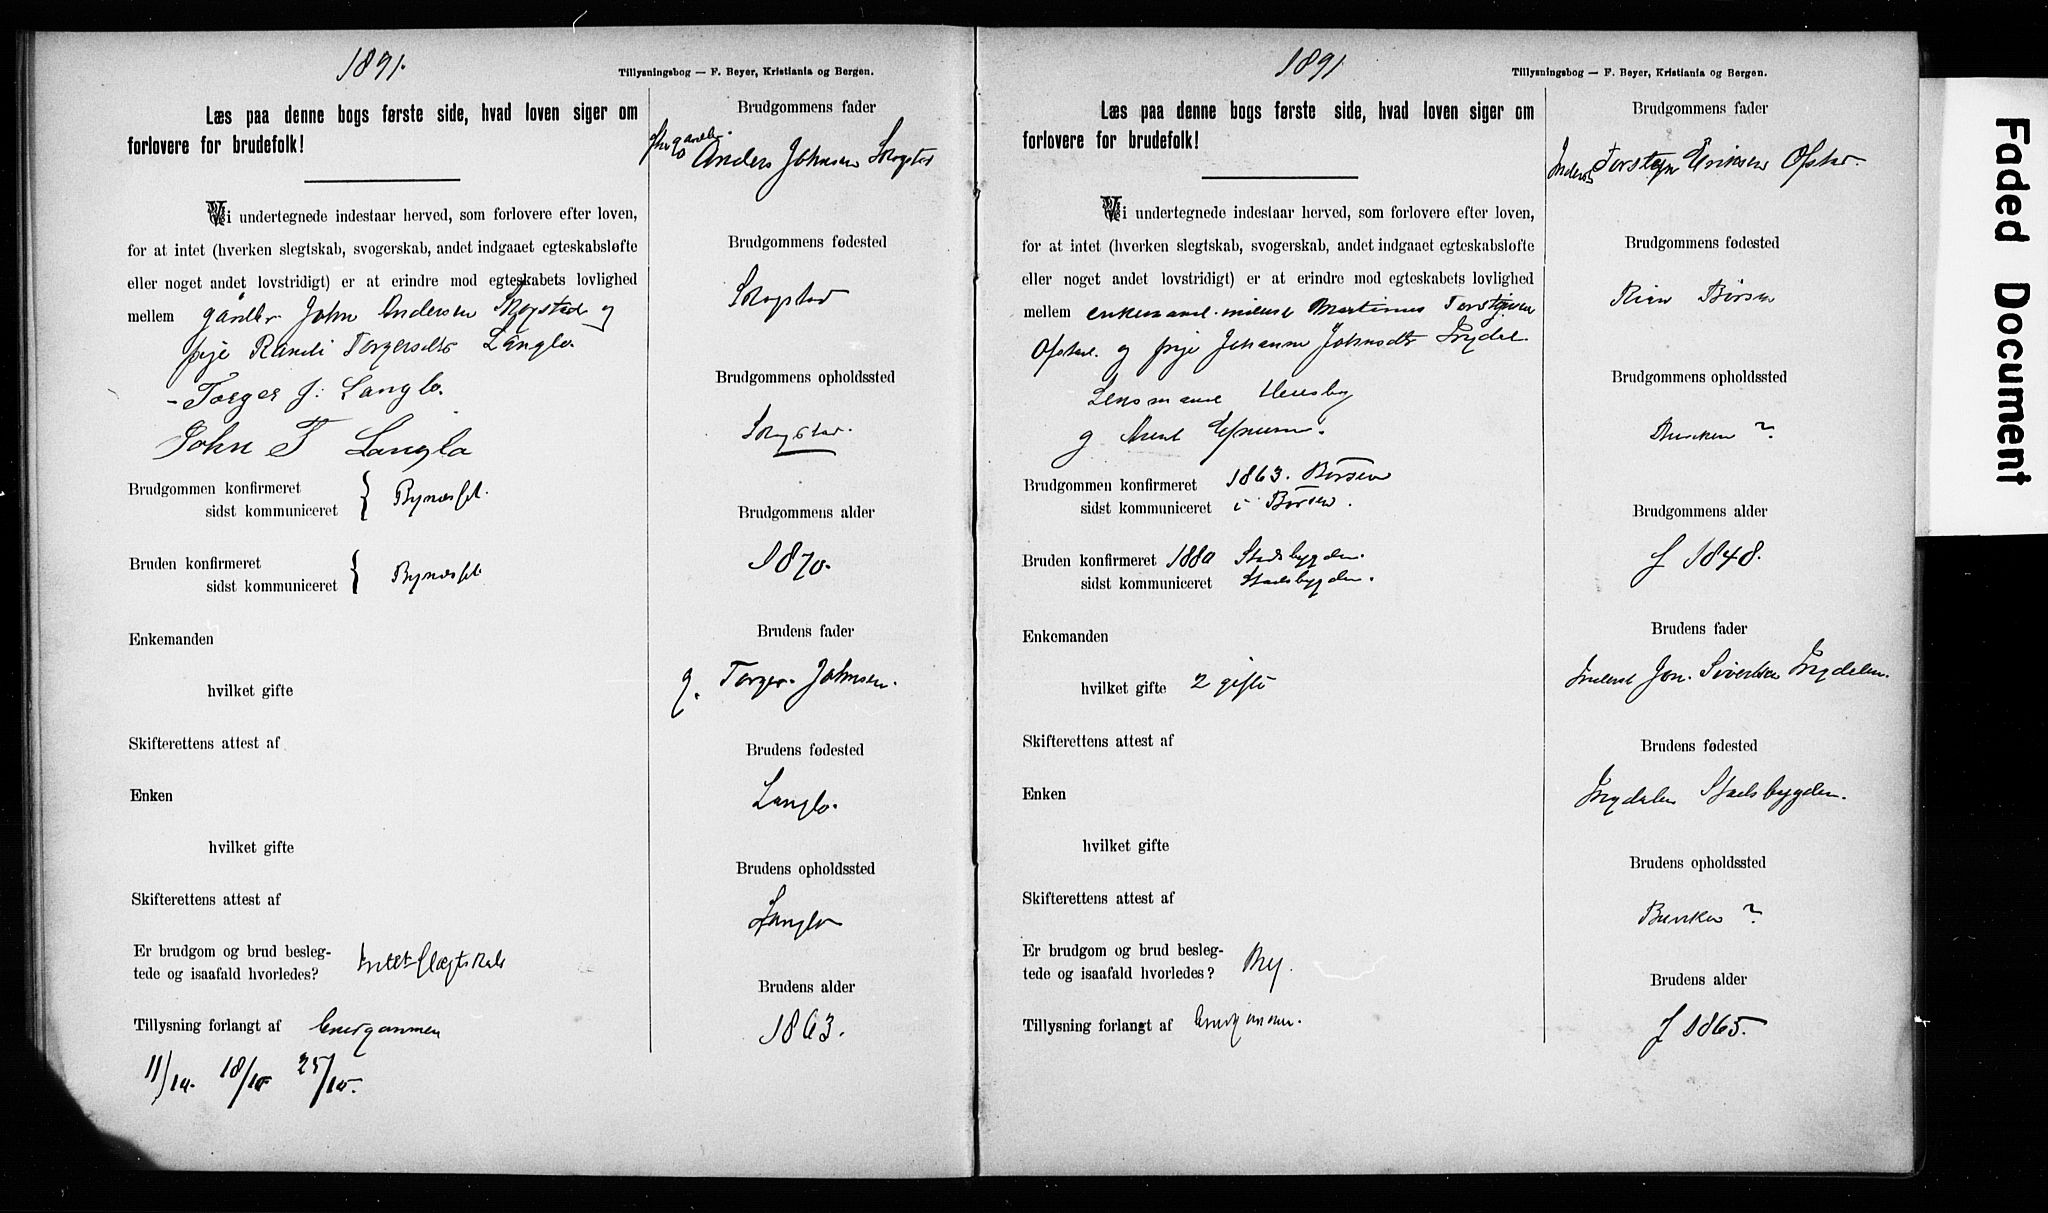 1891.
Tillysningsbog — F. Beyer, Kristiania og Bergen.
Læs paa denne bogs første side, hvad loven siger om
forlovere for brudefolk!
Vi undertegnede indestaar herved, som forlovere efter loven,
for at intet (hverken slegtskab, svogerskab, andet indgaaet egteskabsløfte
eller noget andet lovstridigt) er at erindre mod egteskabets lovlighed
mellem gårdbr John Andersen Skogstad og
pige Randi Torgersdtr Langlo.
- Torger J. Langlo.
John T Langlo
Brudgommen konfirmeret
sidst kommuniceret } Bynesset.
Bruden konfirmeret
sidst kommuniceret { Bynesset
Enkemanden
hvilket gifte
Skifterettens attest af
Enken
hvilket gifte
Skifterettens attest af
Er brudgom og brud besleg-
tede og isaafald hvorledes? Intet Slægtskab
Tillysning forlangt af Brudgommen
11/10. 18/10 25/10.
Brudgommens fader
Anders Johnsen Skogstad
Brudgommens fødested
Skogstad
Brudgommens opholdssted
Skogstad.
Brudgommens alder
1870.
Brudens fader
g. Torger Johnsen.
Brudens fødested
Langlo.
Brudens opholdssted
Langlo
Brudens alder
1863.
1891
Tillysningsbog — F. Beyer, Kristiania og Bergen.
Læs paa denne bogs første side, hvad loven siger om
forlovere for brudefolk!
Vi undertegnede indestaar herved, som forlovere efter loven,
for at intet (hverken slegtskab, svogerskab, andet indgaaet egteskabsløfte
eller noget andet lovstridigt) er at erindre mod egteskabets lovlighed
mellem enkemand inderst Martinus Torstensen
Ofstad. og pige Johanna Johnsdtr Ingdal.
Lensmand
og
Brudgommen konfirmeret 1863. Børsen
sidst kommuniceret i Børsen.
Bruden konfirmeret 1880 Stadsbygden.
sidst kommuniceret Stadsbygden.
Enkemanden
hvilket gifte 2 gifte
Skifterettens attest af
Enken
hvilket gifte
Skifterettens attest af
Er brudgom og brud besleg-
tede og isaafald hvorledes? Nej.
Tillysning forlangt af Brudgommen.
Brudgommens fader
Inderst Torsten Eriksen Ofstad.
Brudgommens fødested
Børsen
Brudgommens opholdssted
Buviken ?
Brudgommens alder
f 1848.
Brudens fader
Inderst Jon Sivertsen Ingdalen.
Brudens fødested
Ingdalen Stadsbygden.
Brudens opholdssted
Buviken ?
Brudens alder
f 1865.
Faded Document